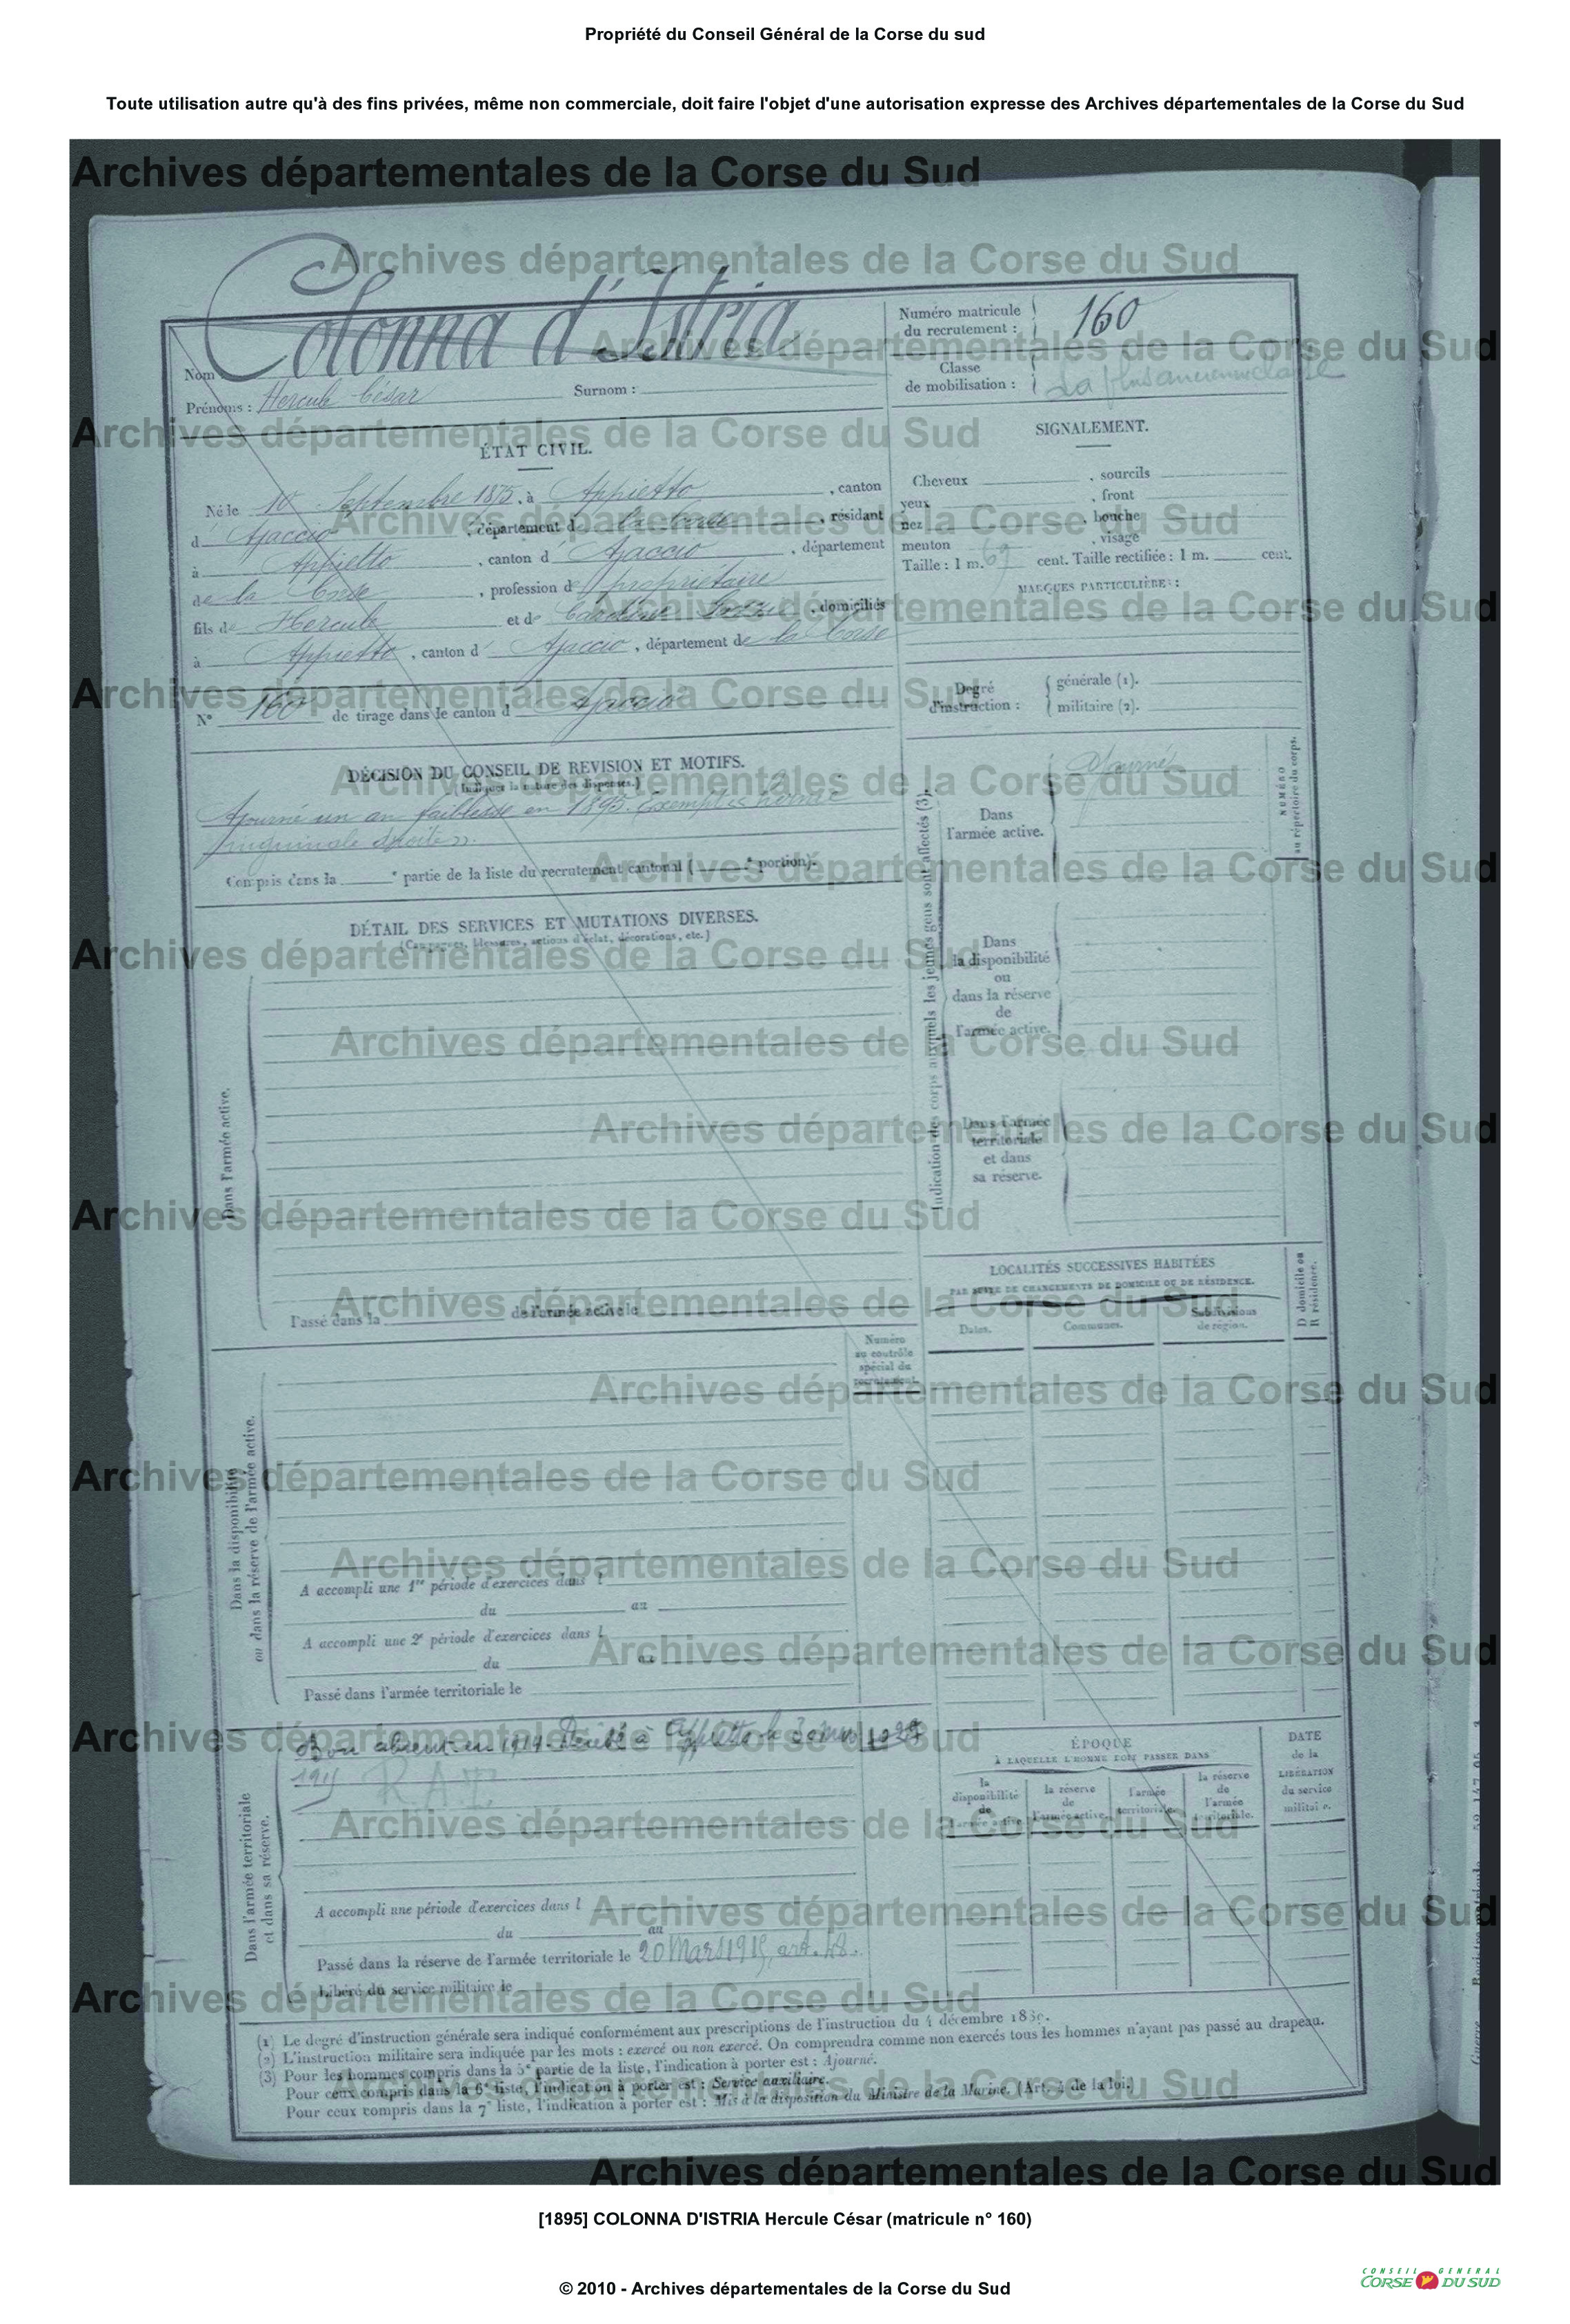 Propriété du Conseil Général de la Corse du sud
Toute utilisation autre qu'à des fins privées, même non commerciale, doit faire l'objet d'une autorisation expresse des Archives départementales de la Corse du Sud
Archives départementales de la Corse du Sud
Nom Colonna d'Istria
Prénoms : Hercule César Surnom :
Numéro matricule du recrutement : 160
Classe de mobilisation : La plus ancienne classe
ÉTAT CIVIL.
Né le 10 Septembre 1875, à Appietto, canton
d Ajaccio, département d la Corse, résidant
à Appietto, canton d Ajaccio, département
de la Corse, profession de propriétaire
fils de Hercule et de, domiciliés
à Appietto, canton d Ajaccio, département de la Corse
N° 160 de tirage dans le canton d Ajaccio
SIGNALEMENT.
Cheveux , sourcils
yeux , front
nez , bouche
menton , visage
Taille : 1 m. 69 cent. Taille rectifiée : 1 m. cent.
MARQUES PARTICULIÈRES :
Degré d'instruction : générale (1).
militaire (2).
DÉCISION DU CONSEIL DE REVISION ET MOTIFS.
(Indiquer la nature des dispenses.)
Ajourné un an faiblesse en 1895. Exempté « hernie
inguinale droite ».
Compris dans la e partie de la liste du recrutement cantonal ( e portion).
Indication des corps auxquels les jeunes gens sont affectés (3).
Dans l'armée active. Ajourné
NUMÉRO au répertoire du corps.
Dans la disponibilité ou dans la réserve de l'armée active.
Dans l'armée territoriale et dans sa réserve.
DÉTAIL DES SERVICES ET MUTATIONS DIVERSES.
(Campagnes, blessures, actions d'éclat, décorations, etc.)
Dans l'armée active.
Passé dans la de l'armée active le
LOCALITÉS SUCCESSIVES HABITÉES
PAR SUITE DE CHANGEMENTS DE DOMICILE OU DE RÉSIDENCE.
Dates. Communes. Subdivisions de région. D domicile ou R résidence.
Numéro au contrôle spécial du recrutement.
Dans la disponibilité ou dans la réserve de l'armée active.
A accompli une 1re période d'exercices dans l
du au
A accompli une 2e période d'exercices dans l
du au
Passé dans l'armée territoriale le
Dans l'armée territoriale et dans sa réserve.
Bon absent en 1914. à Appietto le
1915 R.A.T.
A accompli une période d'exercices dans l
du au
Passé dans la réserve de l'armée territoriale le 20 Mars 1915, art. 48.
Libéré du service militaire le
ÉPOQUE
À LAQUELLE L'HOMME DOIT PASSER DANS
la disponibilité de l'armée active. la réserve de l'armée active. l'armée territoriale. la réserve de l'armée territoriale.
DATE de la LIBÉRATION du service militaire.
(1) Le degré d'instruction générale sera indiqué conformément aux prescriptions de l'instruction du 4 décembre
(2) L'instruction militaire sera indiquée par les mots : exercé ou non exercé. On comprendra comme non exercés tous les hommes n'ayant pas passé au drapeau.
(3) Pour les hommes compris dans la 5e partie de la liste, l'indication à porter est : Ajourné.
Pour ceux compris dans la 6e liste, l'indication à porter est : Service auxiliaire.
Pour ceux compris dans la 7e liste, l'indication à porter est : Mis à la disposition du Ministre de la Marine. (Art. 4 de la loi.)
[1895] COLONNA D'ISTRIA Hercule César (matricule n° 160)
© 2010 - Archives départementales de la Corse du Sud
CONSEIL GENERAL
CORSE DU SUD